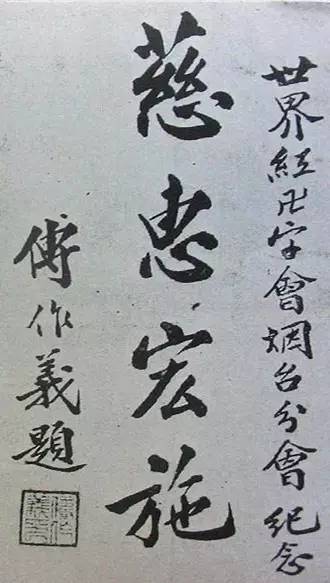 世界红卍字會烟台分會紀念
慈惠宏施
傅作義題